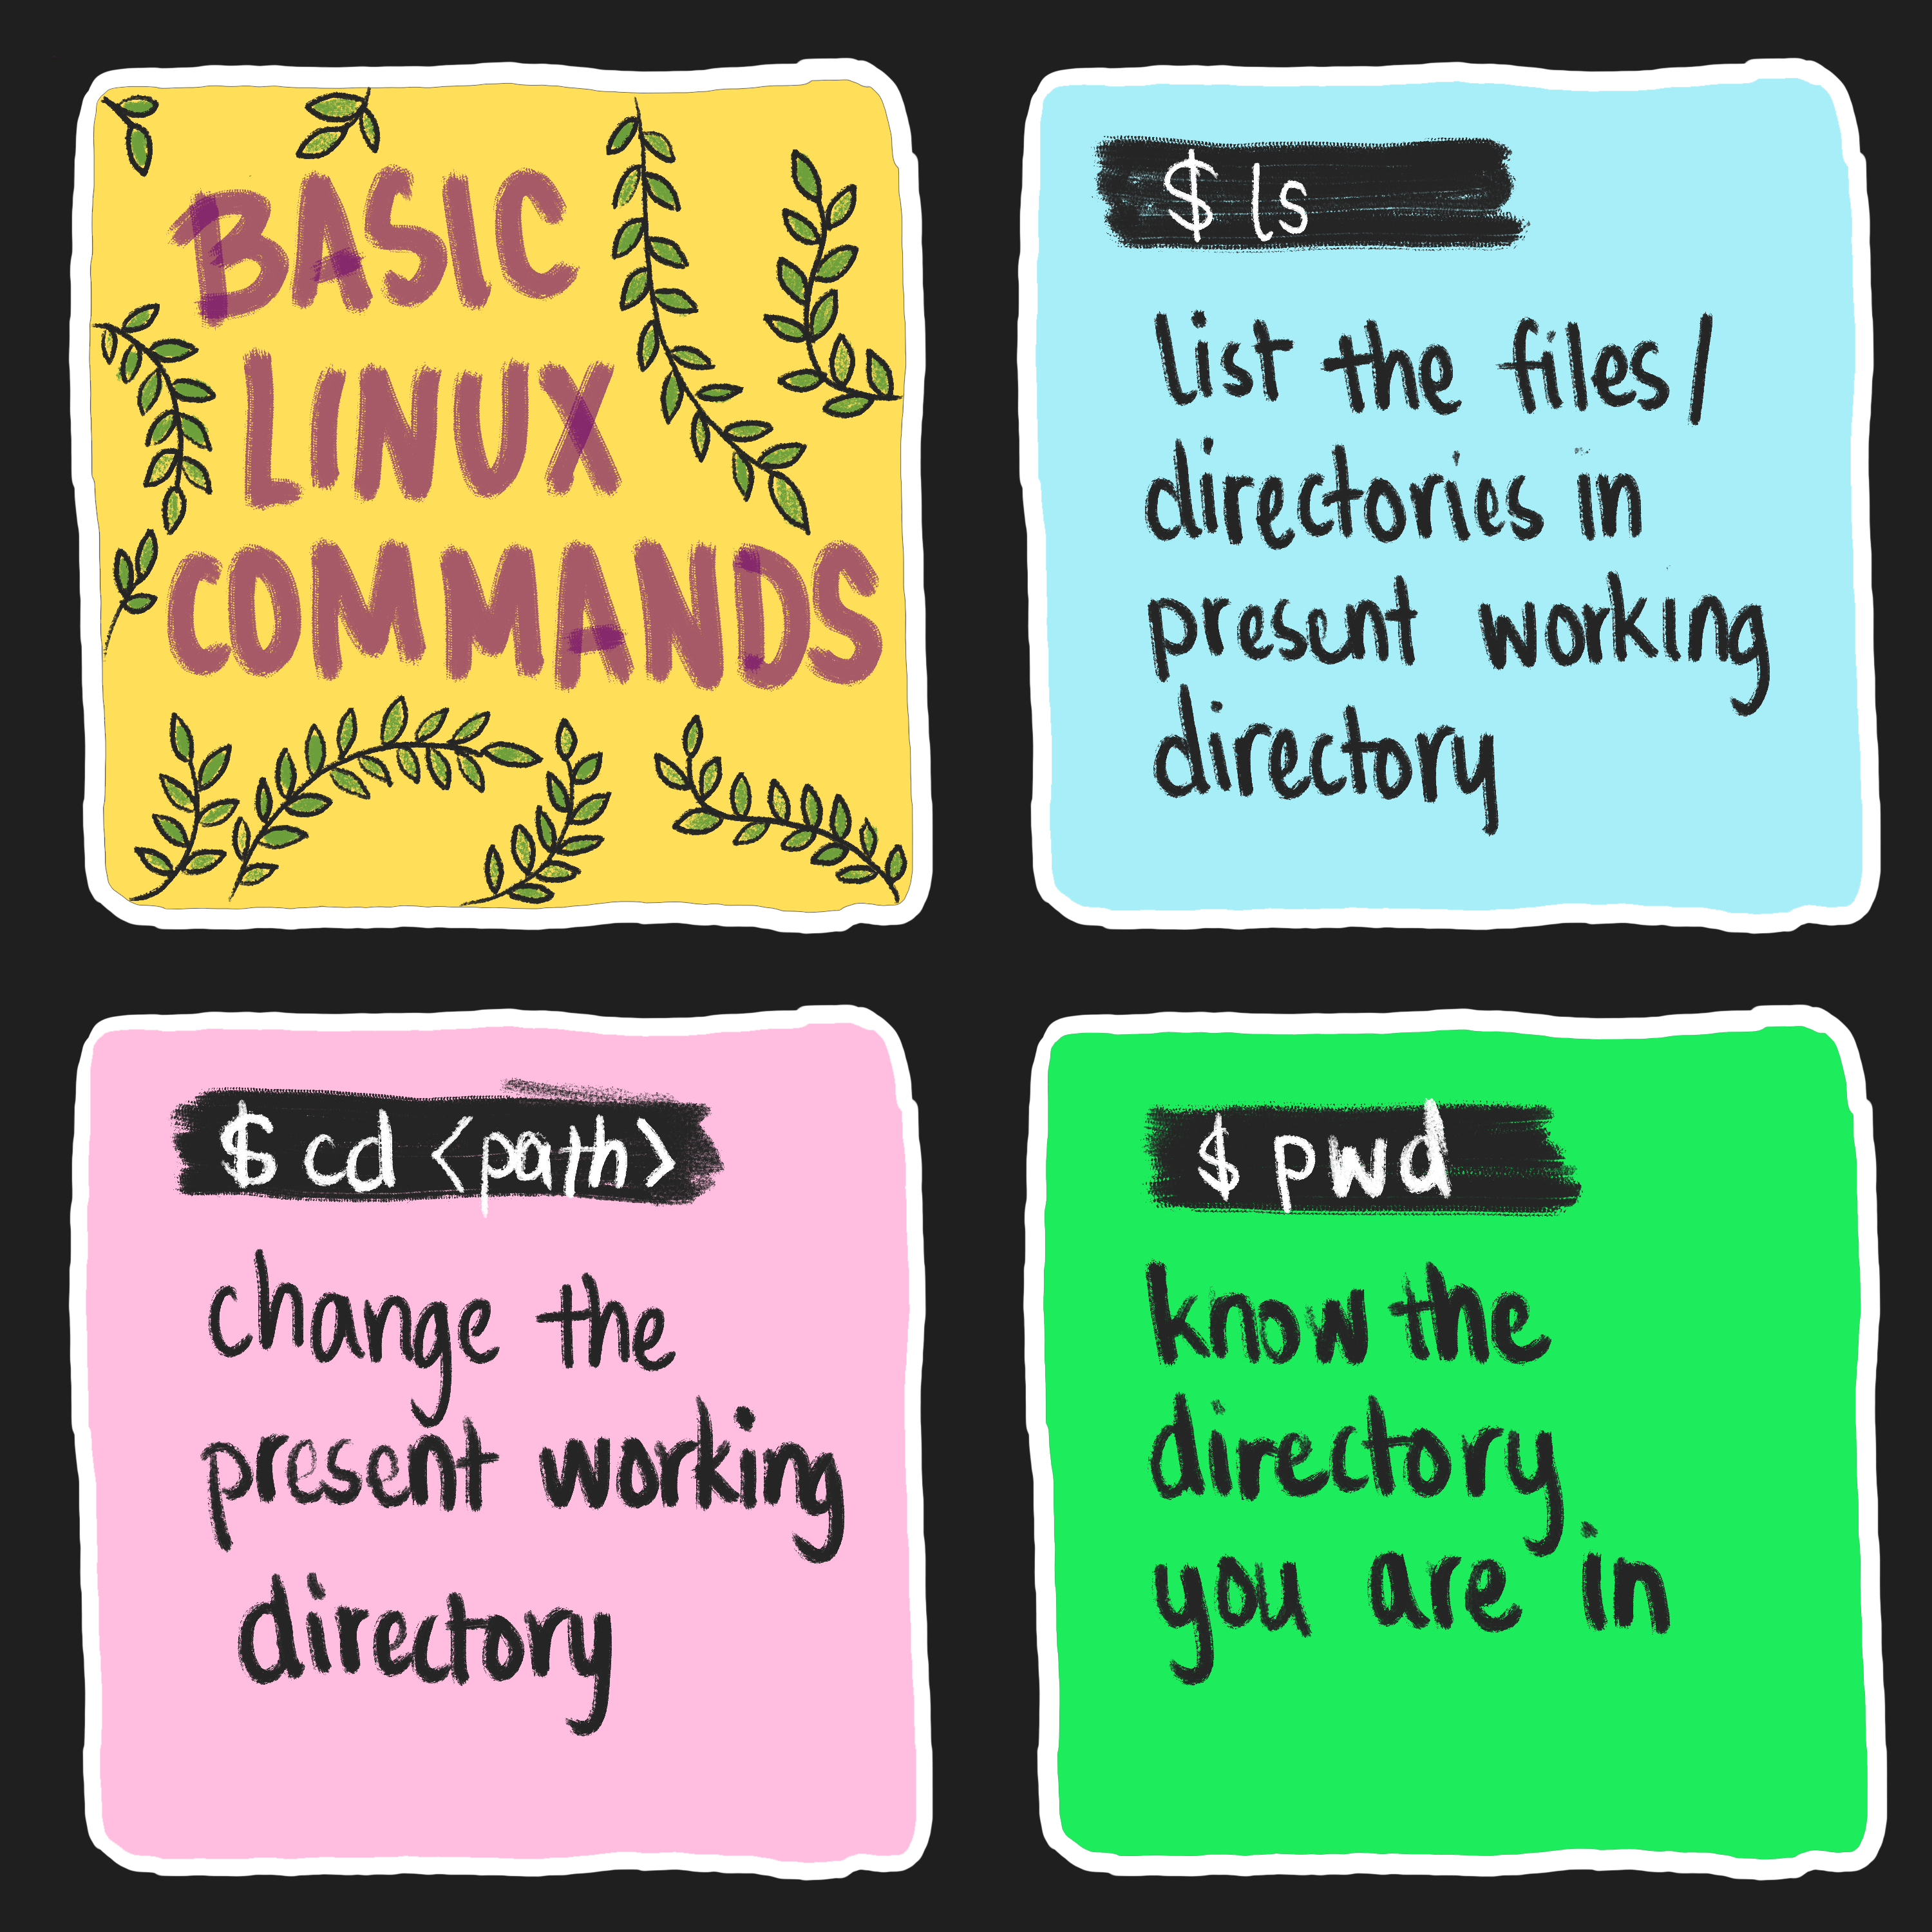 BASIC
LINUX
COMMANDS
$ ls
list the files/
directories in
present working
directory
$ cd <path>
change the
present working
directory
$ pwd
know the
directory
you are in